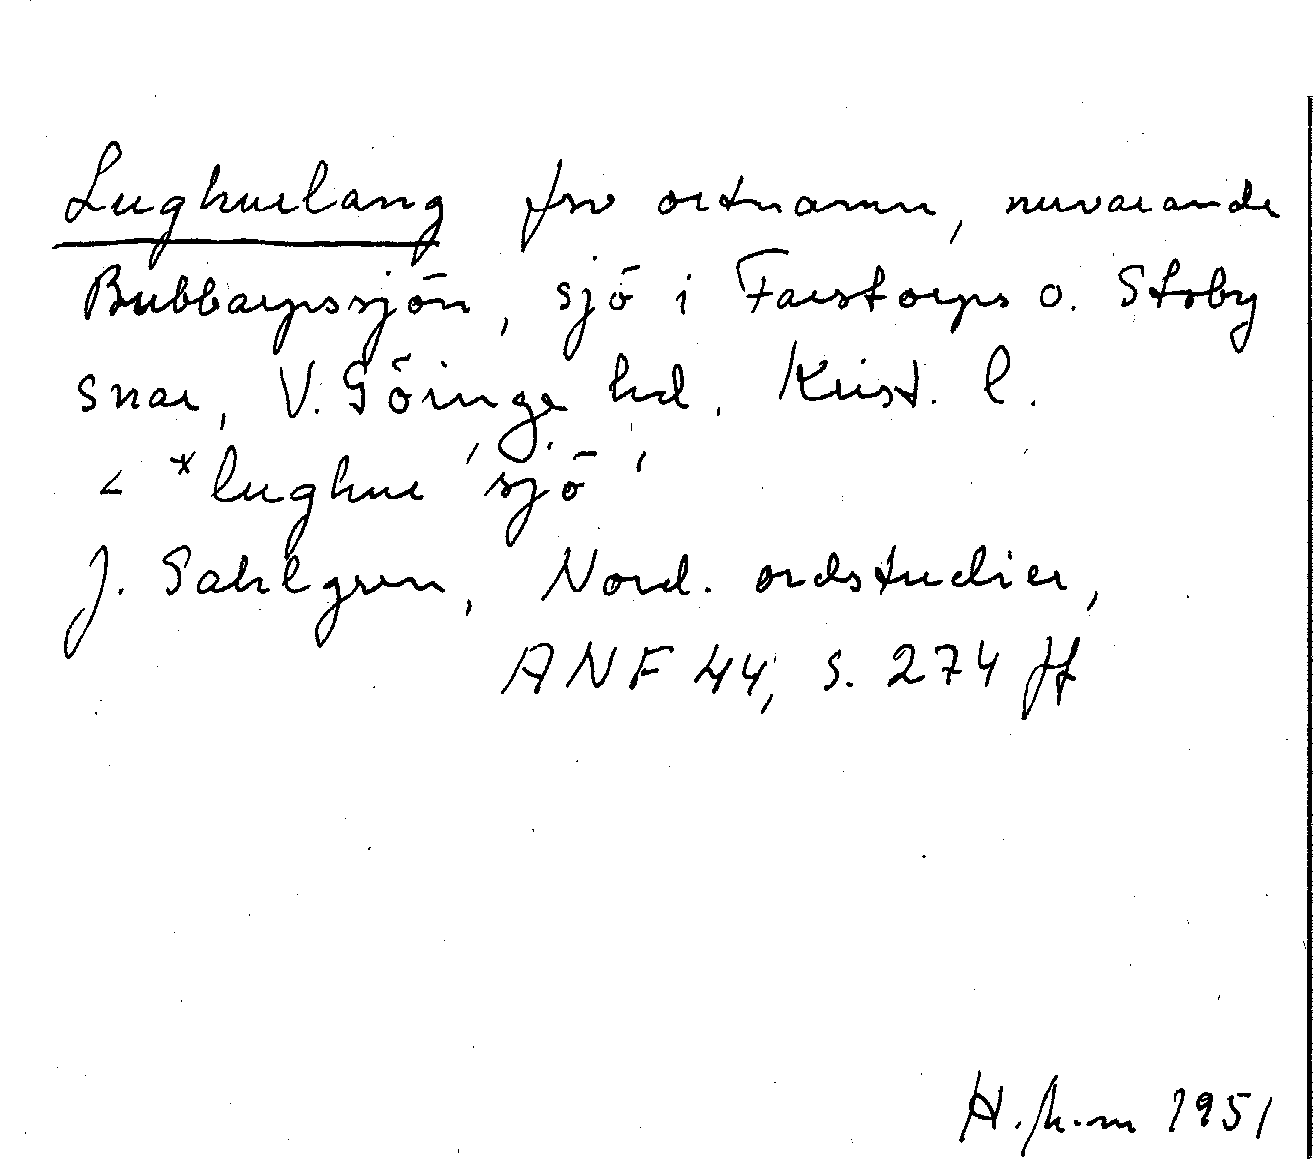 Lughuelang fsv ortnamn, nuvarande
Bubbarpssjön, sjö i Farstorps o. Stoby
snar, V. Göinge hd, Krist. l.
< *lughue 'sjö'
J. Sahlgren, Nord. ordstudier,
ANF 44, s. 274 ff
1951